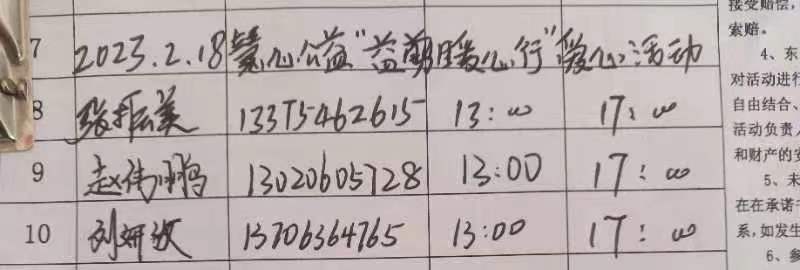 7 2023.2.18慧心公益"益剪暖心行"爱心活动
8 张振美 13375462615 13:00 17:00
9 赵伟鹏 13020605728 13:00 17:00
10 刘妍 13706364765 13:00 17:00
接受赔偿,
索赔。
4、东
对活动进行
自由结合、
活动负责人
和财产的安
5、未
在在承诺书
系,如发生
6、参